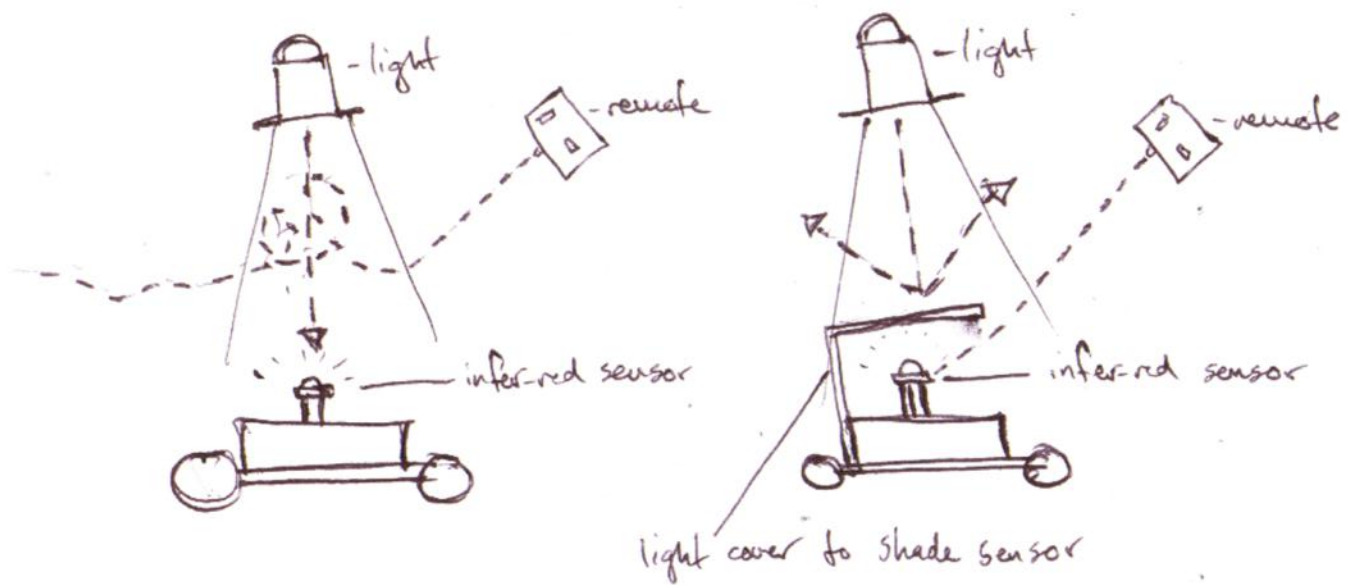 -light
-remote
infer-red sensor
-light
-remote
infer-red sensor
light cover to shade sensor